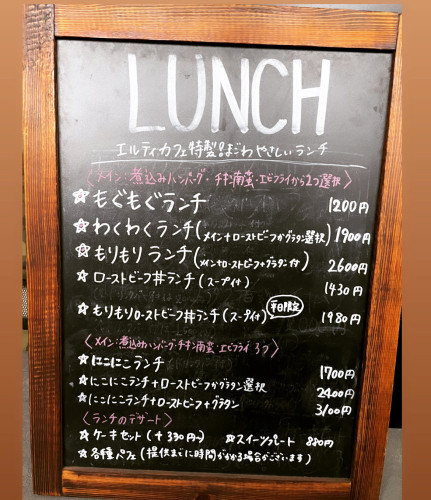 LUNCH
エルティカフェ特製!まごわやさしいランチ
〈メイン:煮込みハンバーグ・チキン南蛮・エビフライから2つ選択〉
☆もぐもぐランチ 1200円
☆わくわくランチ(メイン+ローストビーフかグラタン選択) 1900円
☆もりもりランチ(メイン+ローストビーフ+グラタン付) 2600円
☆ローストビーフ丼ランチ(スープ付) 1430円
平日限定
☆もりもりローストビーフ丼ランチ(スープ付) 1980円
〈メイン:煮込みハンバーグ・チキン南蛮・エビフライ 3つ〉
☆にこにこランチ 1700円
☆にこにこランチ+ローストビーフかグラタン選択 2400円
☆にこにこランチ+ローストビーフ+グラタン 3100円
〈ランチのデザート〉
☆ケーキセット(+330円〜) ☆スイーツプレート 880円
☆各種パフェ(提供までに時間がかかる場合がございます)